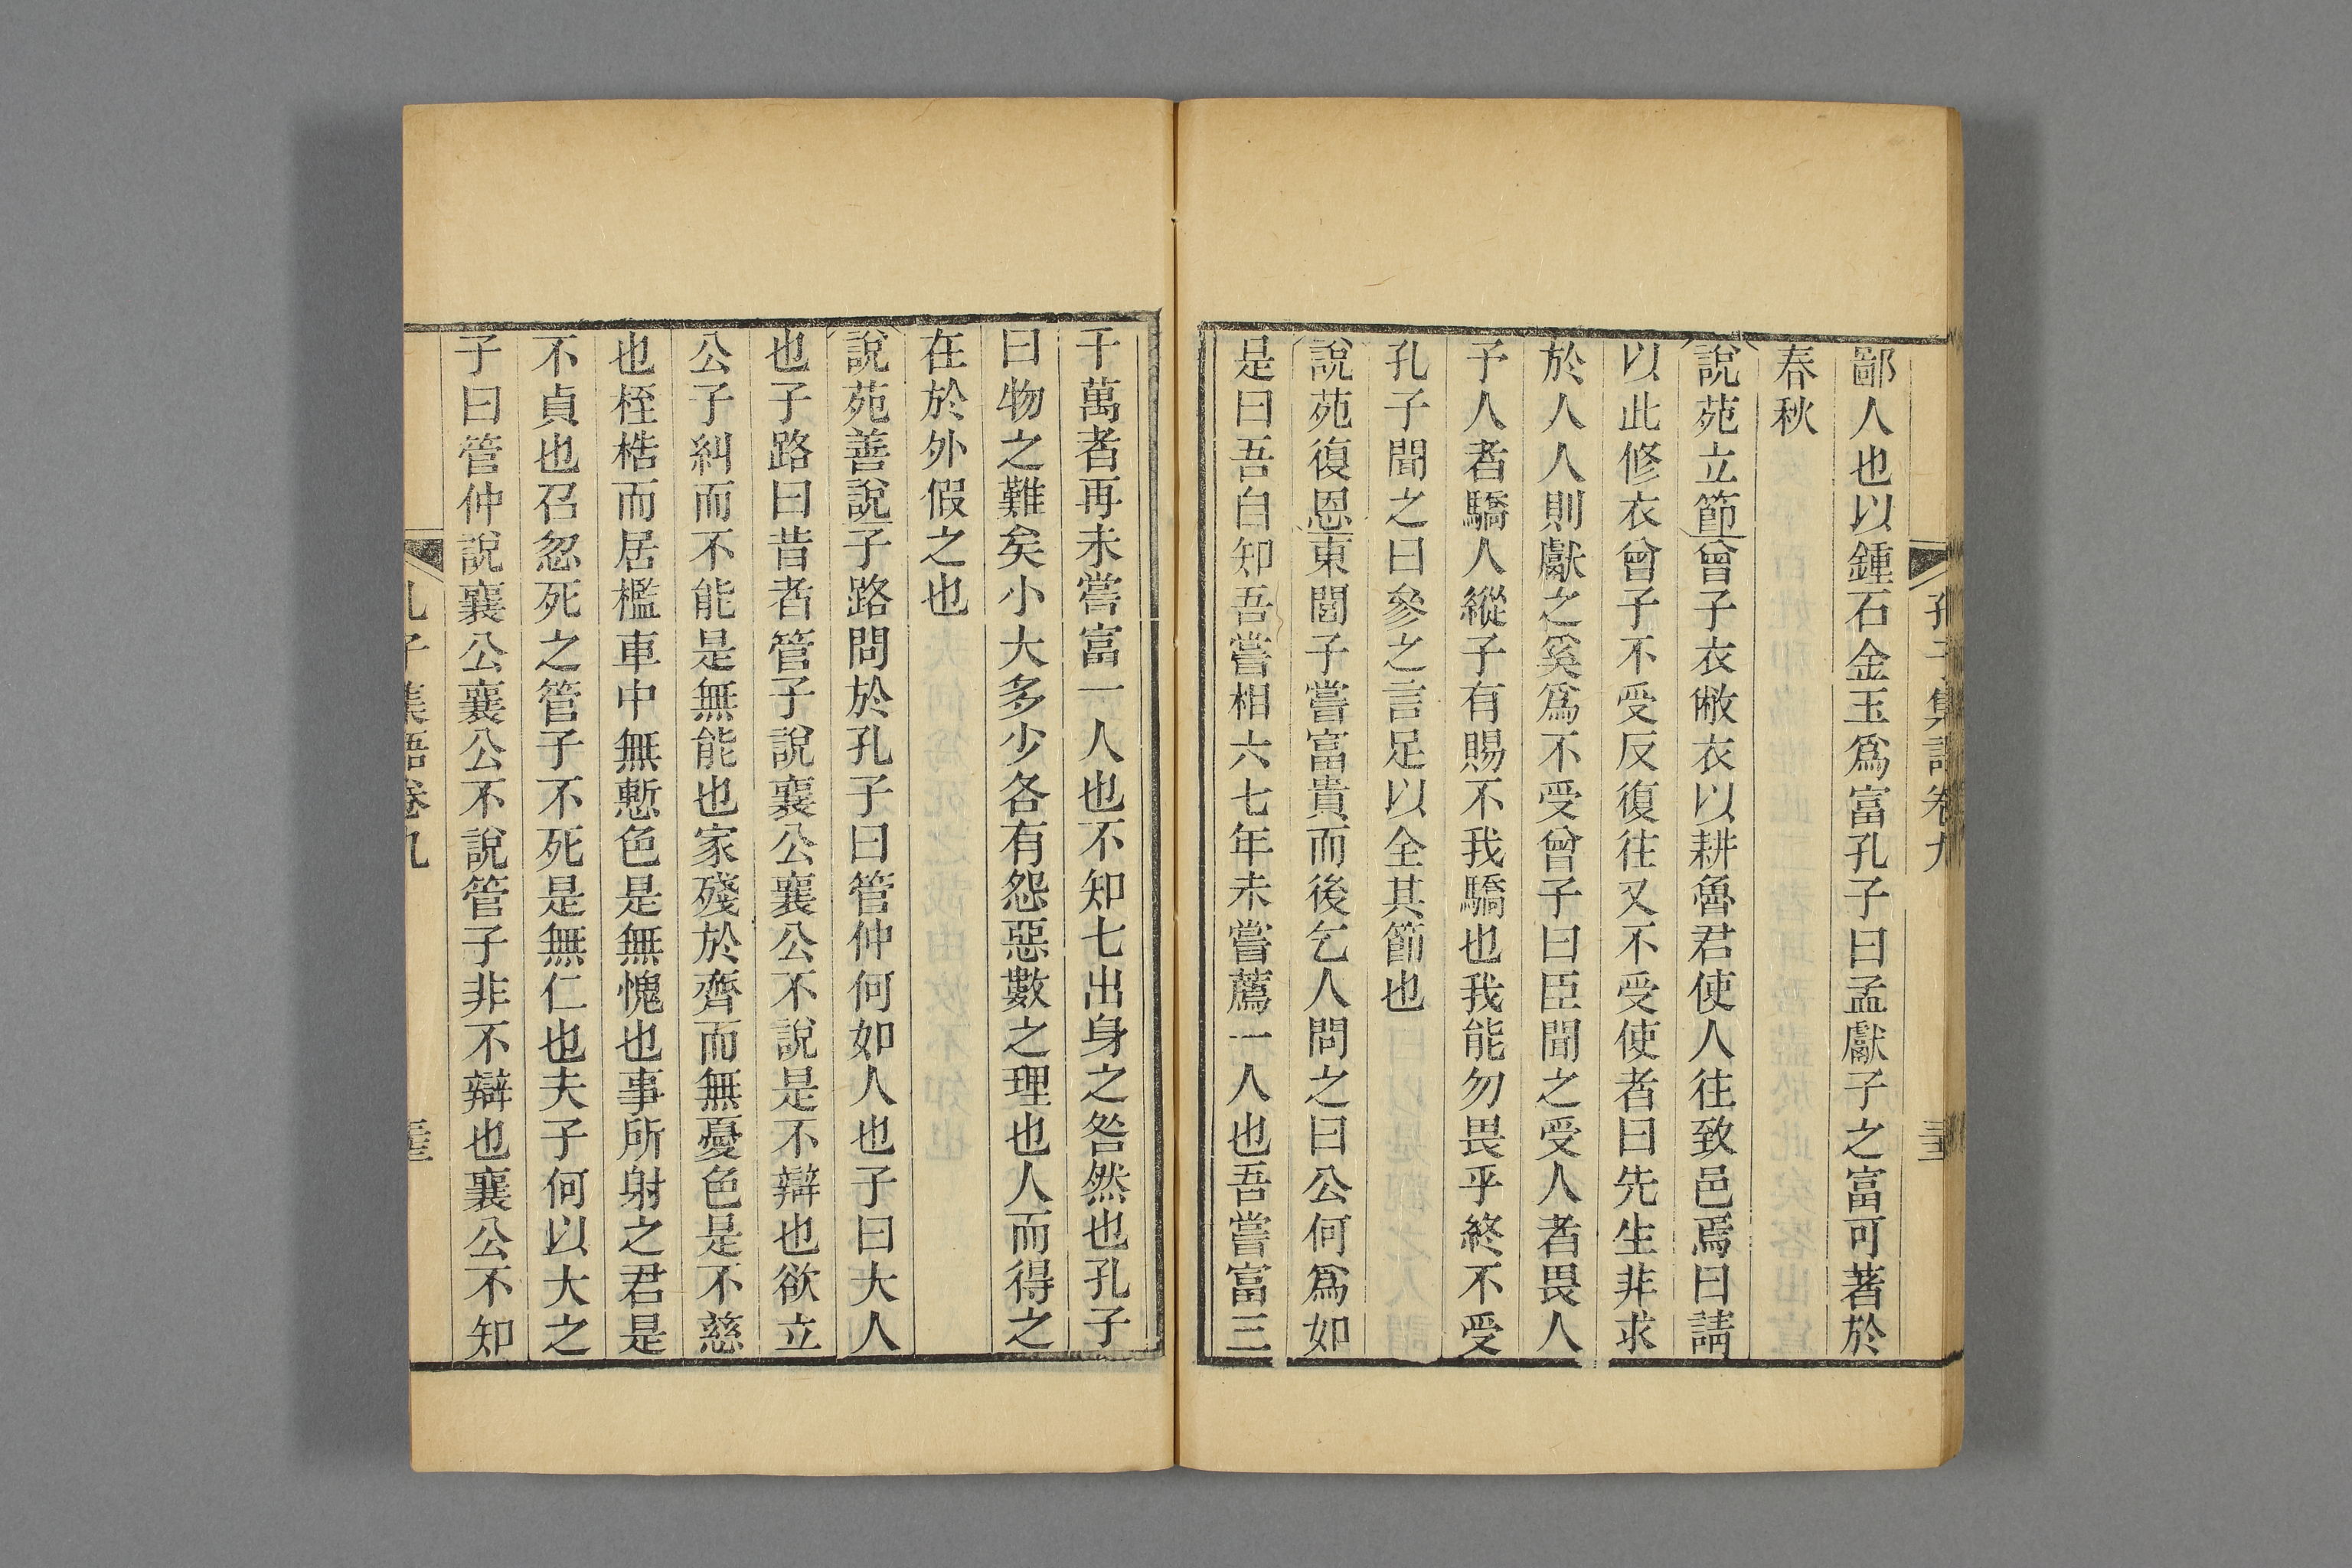 孔子集語卷九
鄙人也以鍾石金玉爲富孔子曰孟獻子之富可著於
春秋
說苑立節曾子衣敝衣以耕魯君使人往致邑焉曰請
以此修衣曾子不受反復往又不受使者曰先生非求
於人人則獻之奚爲不受曾子曰臣聞之受人者畏人
予人者驕人縱子有賜不我驕也我能勿畏乎終不受
孔子聞之曰參之言足以全其節也
說苑復恩東閭子嘗富貴而後乞人問之曰公何爲如
是曰吾自知吾嘗相六七年未嘗薦一人也吾嘗富三
千萬者再未嘗富一人也不知七出身之咎然也孔子
曰物之難矣小大多少各有怨惡數之理也人而得之
在於外假之也
說苑善說子路問於孔子曰管仲何如人也子曰大人
也子路曰昔者管子說襄公襄公不說是不辯也欲立
公子糾而不能是無能也家殘於齊而無憂色是不慈
也桎梏而居檻車中無慙色是無愧也事所射之君是
不貞也召忽死之管子不死是無仁也夫子何以大之
子曰管仲說襄公襄公不說管子非不辯也襄公不知
孔子集語卷九